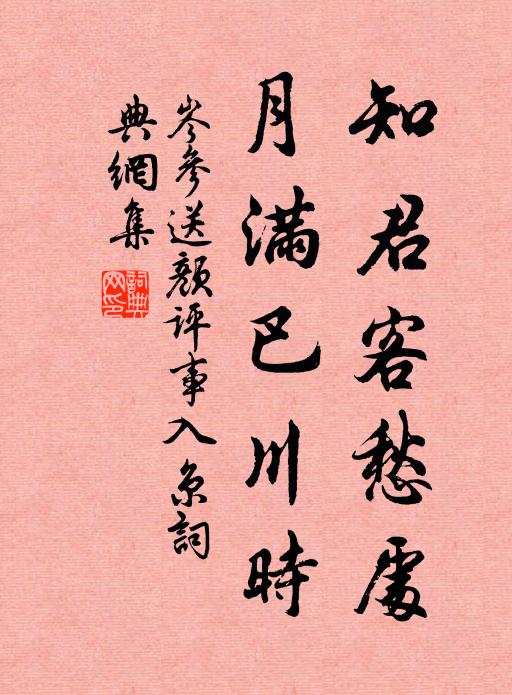 知君客愁處
月滿巴川時
岑參送顏評事入京詞
典網集
詞典網印